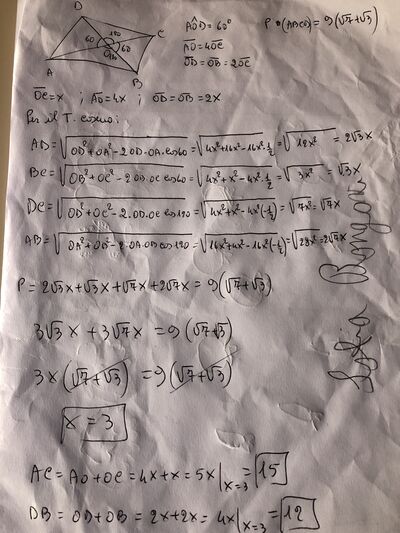 D
120
60
60
C
O
120
A
B
AÔD = 60°
AO = 4OC
OD = OB = 2OC
P (ABCD) = 9(√7+√3)
OC = x ; AO = 4x ; OD = OB = 2x
Per il T. coseno:
AD = √OD²+OA²-2OD·OA·cos60 = √4x²+16x²-16x²·1/2 = √12x² = 2√3x
BC = √OB²+OC²-2OB·OC·cos60 = √4x²+x²-4x²·1/2 = √3x² = √3x
DC = √OD²+OC²-2·OD·OC cos120 = √4x²+x²-4x²(-1/2) = √7x² = √7x
AB = √OA²+OB²-2·OA·OB cos120 = √16x²+4x²-16x²(-1/2) = √28x² = 2√7x
P = 2√3x+√3x+√7x+2√7x = 9(√7+√3)
3√3x + 3√7x = 9(√7+√3)
3x(√7+√3) = 9(√7+√3)
x = 3
AC = AO+OC = 4x+x = 5x|x=3 = 15
DB = OD+OB = 2x+2x = 4x|x=3 = 12